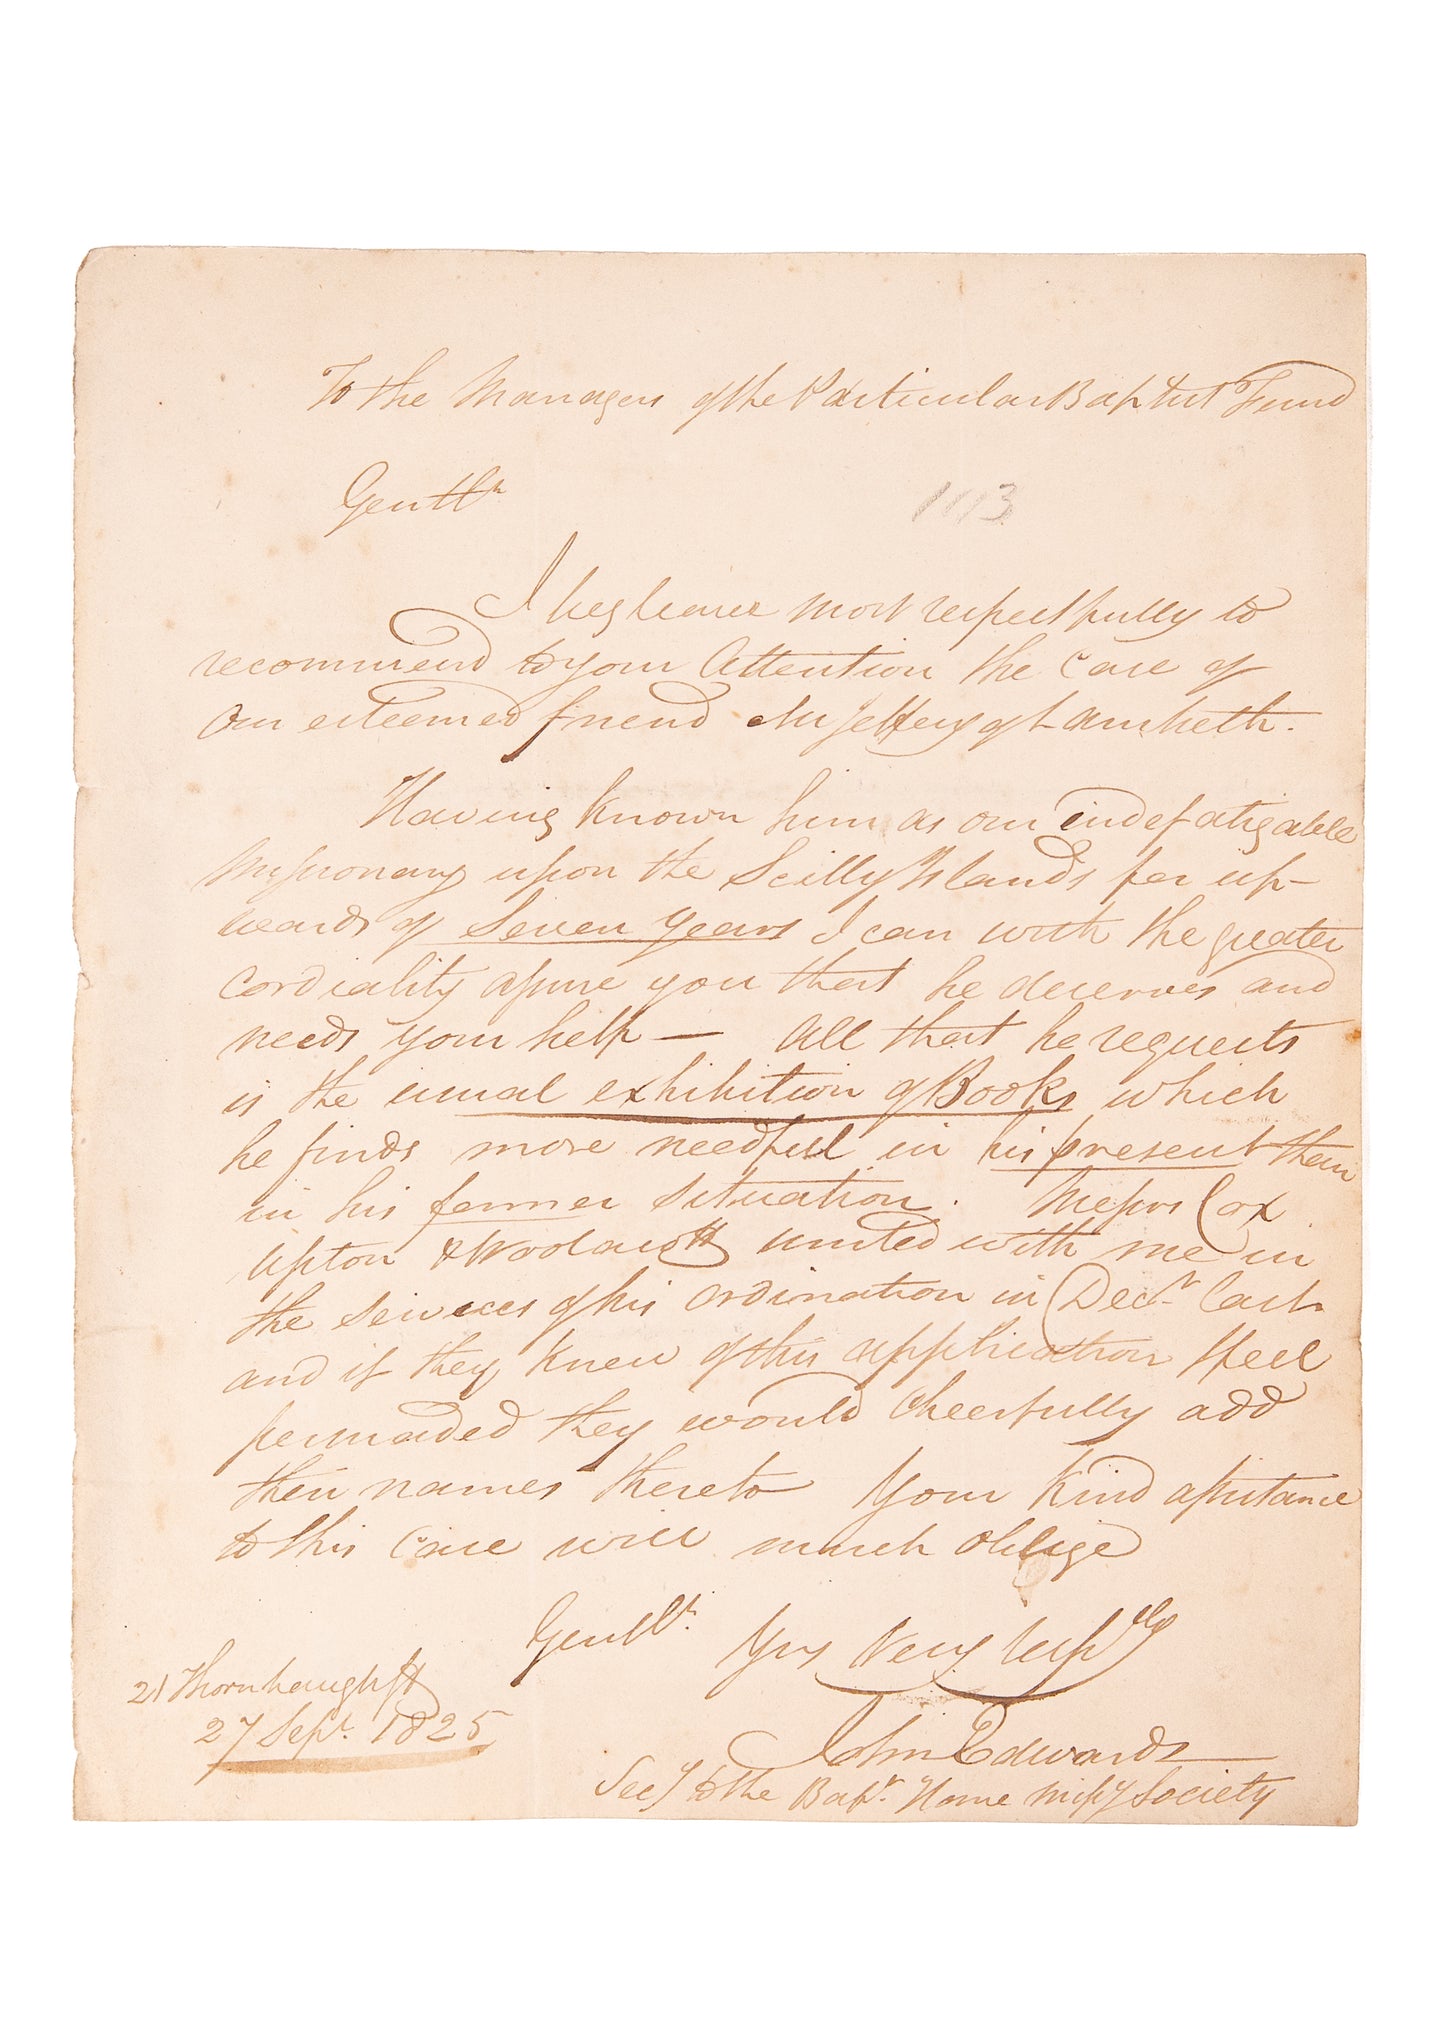 To the Managers of the Particular Baptist Fund
Gentln
1113
I beg leave most respectfully to
recommend to your Attention the case of
our esteemed friend Mr Jeffery of Lambeth.
Having known him as our indefatigable
Missionary upon the Scilly Islands for up-
wards of Seven Years I can with the greater
cordiality assure you that he deserves and
needs your help — All that he requests
is the usual exhibition of Books which
he finds more needful in his present than
in his former situation. Messrs Cox
Upton & Woolacott united with me in
the services of his ordination in Decr last
and if they knew of this application I feel
persuaded they would cheerfully add
their names thereto Your kind assistance
to this case will much oblige
Gentln. Yrs Very resply
21 Thornhaugh St
27 Sept. 1825
John Edwards
Secy to the Bapt. Home Missy Society